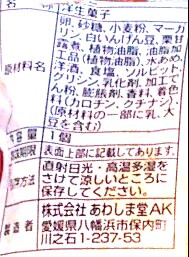 洋生菓子
原材料名
卵、砂糖、小麦粉、マーガ
リン、白いんげん豆、栗甘
露煮、植物油脂、油脂加
工品(植物油脂)、水あめ、
洋酒、食塩、ソルビット
グリシン、乳化剤、加工でん
粉、膨脹剤、香料、着色
料(カロチン、クチナシ)、
(原材料の一部に乳、大
豆を含む)
内容量 1個
表面上部に記載してあります。
保存方法
直射日光・高温多湿を
さけて涼しいところに
保存してください。
製造者
株式会社 あわしま堂AK
愛媛県八幡浜市保内町
川之石1-237-53